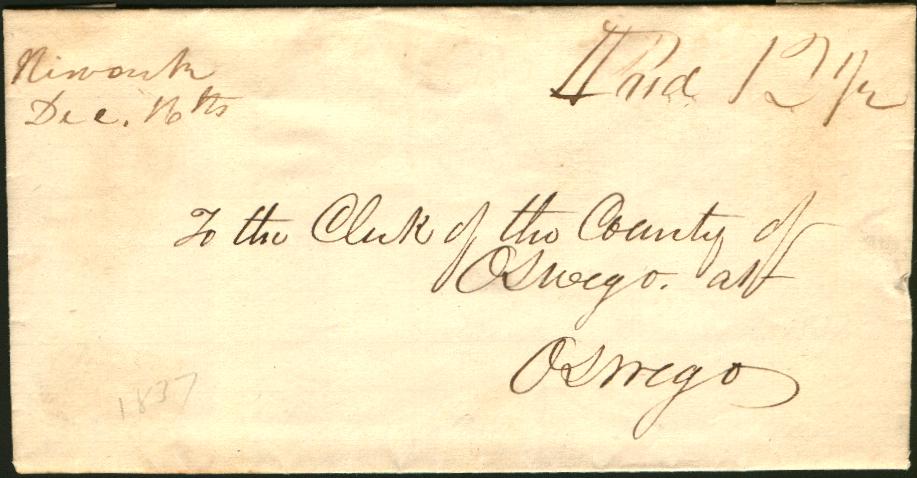 Newark
Dec. 16th
Paid 12 1/2
To the Clerk of the County of
Oswego. at
Oswego
1837